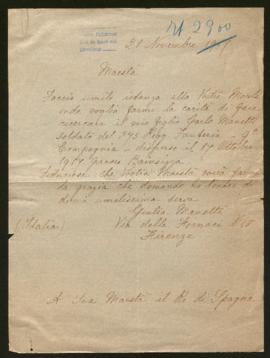 N 2900
21 Novembre 1917
Maestà
Faccio umile istanza alla Vostra Maestà
onde voglia farmi la carità di fare
ricercare il mio figlio Carlo Manetti
Soldato del 243 Regg. Fanteria 9ª
Compagnia disperso il 17 Ottobre
1917 presso Bainsizza
Fiduciosa che Vostra Maestà vorrà farmi
la grazia che domando
di umilissima serva
Giulia Manetti
(Italia) Via delle Fornaci N 10
Firenze
A Sua Maestà il Re di Spagna